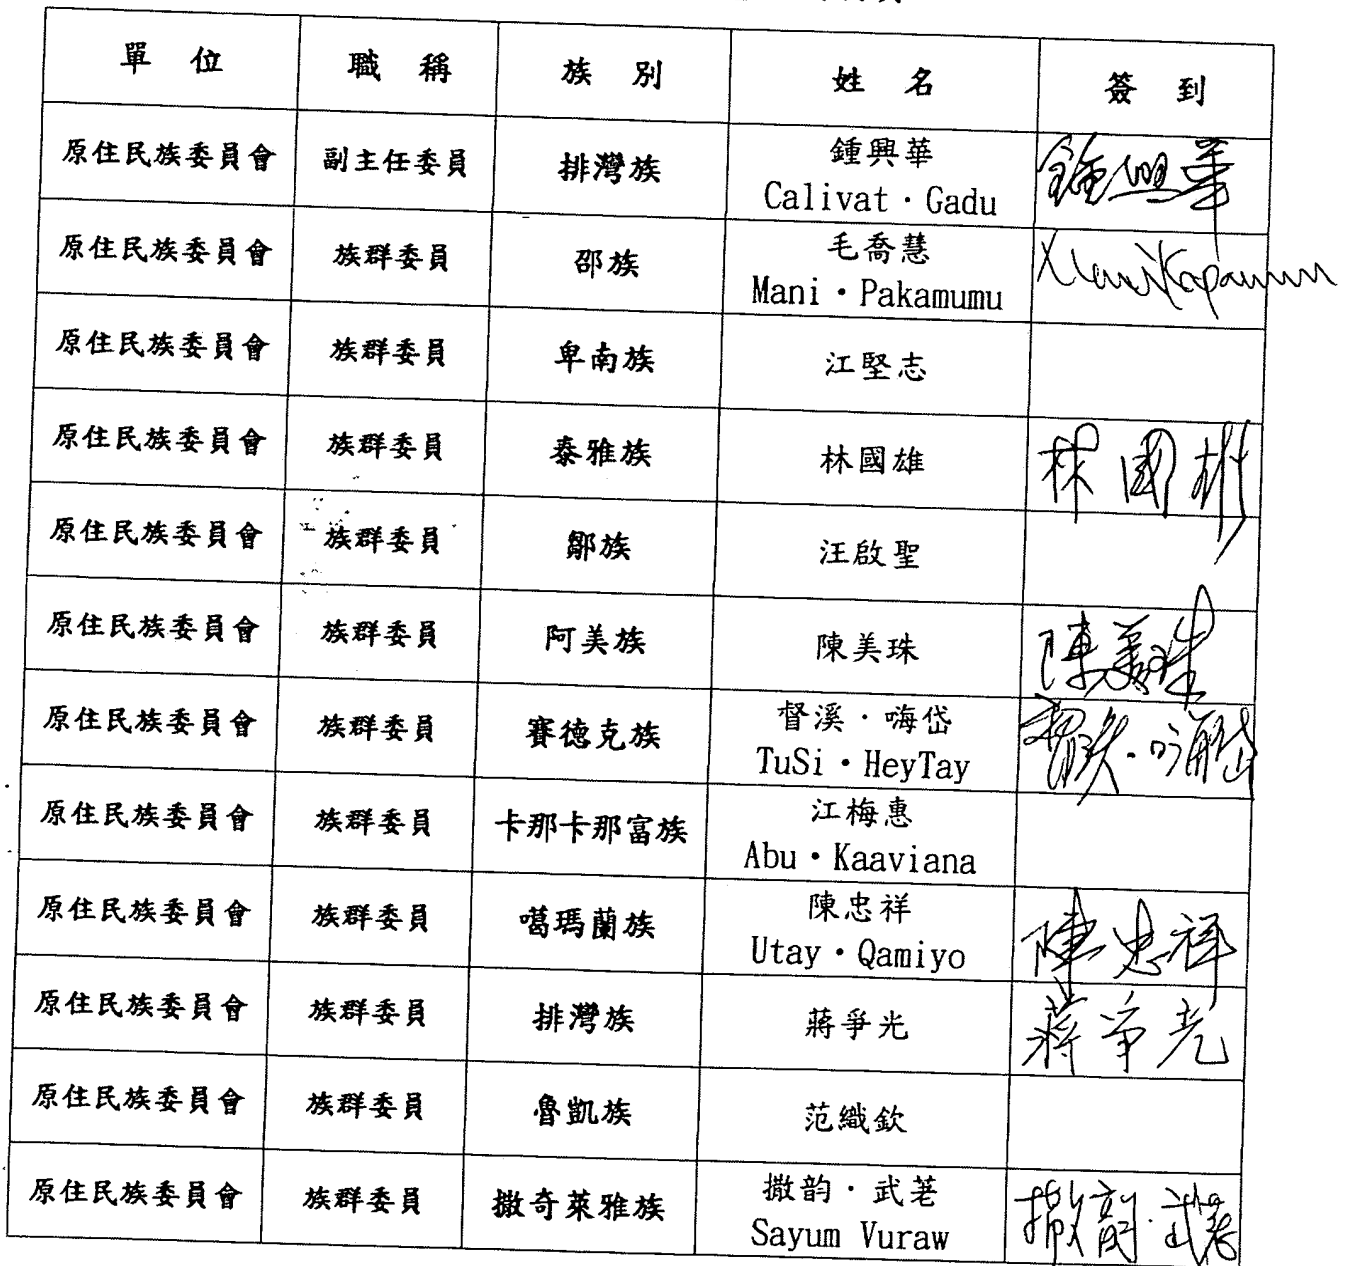 單位 職稱 族別 姓名 簽到
原住民族委員會 副主任委員 排灣族 鍾興華 鍾興華
Calivat·Gadu
原住民族委員會 族群委員 邵族 毛喬慧
Mani·Pakamumu
原住民族委員會 族群委員 卑南族 江堅志
原住民族委員會 族群委員 泰雅族 林國雄 林國雄
原住民族委員會 族群委員 鄒族 汪啟聖
原住民族委員會 族群委員 阿美族 陳美珠 陳美珠
原住民族委員會 族群委員 賽德克族 督溪·嗨岱 督溪·嗨岱
TuSi·HeyTay
原住民族委員會 族群委員 卡那卡那富族 江梅惠
Abu·Kaaviana
原住民族委員會 族群委員 噶瑪蘭族 陳忠祥 陳忠祥
Utay·Qamiyo
原住民族委員會 族群委員 排灣族 蔣爭光 蔣爭光
原住民族委員會 族群委員 魯凱族 范織欽
原住民族委員會 族群委員 撒奇萊雅族 撒韵·武荖 撒韵·武荖
Sayum Vuraw